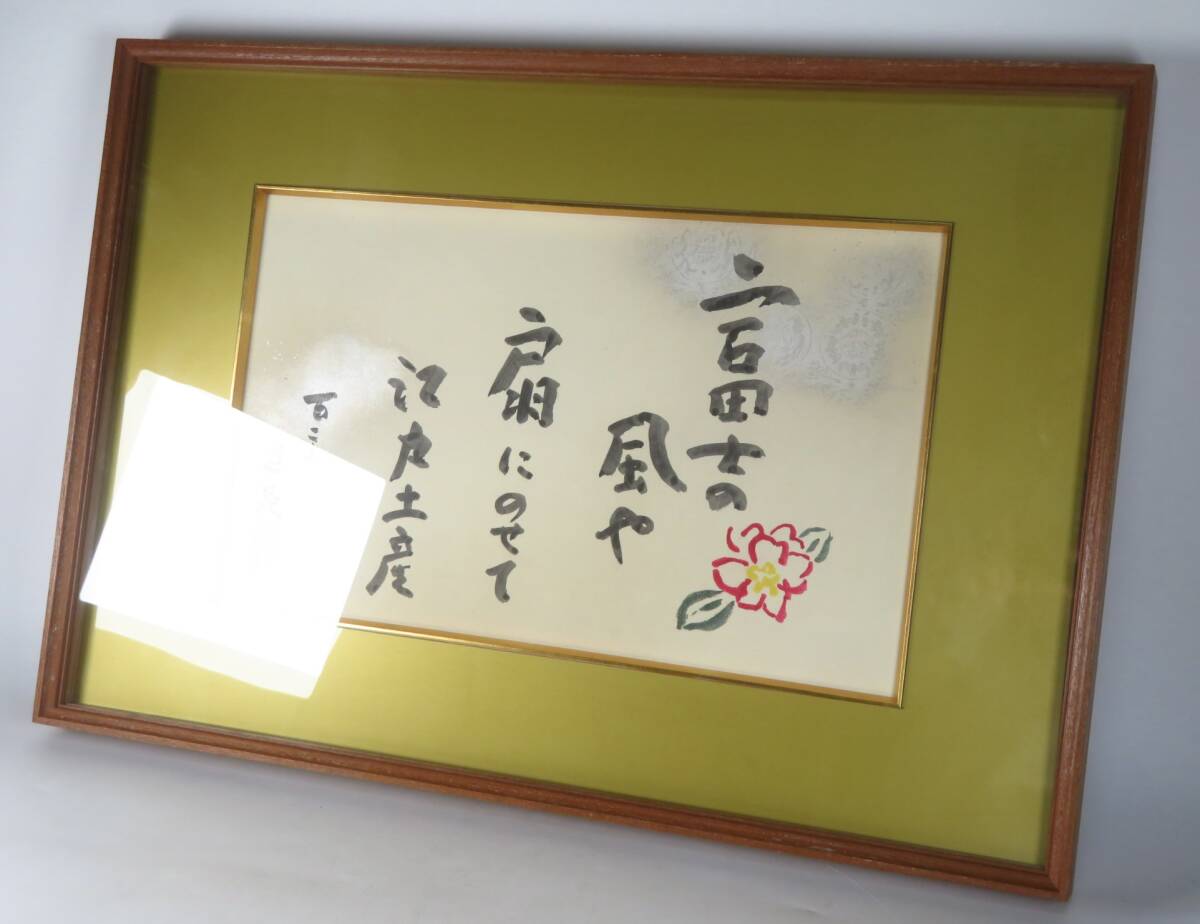 富士の
風や
扇にのせて
江戸土産
百